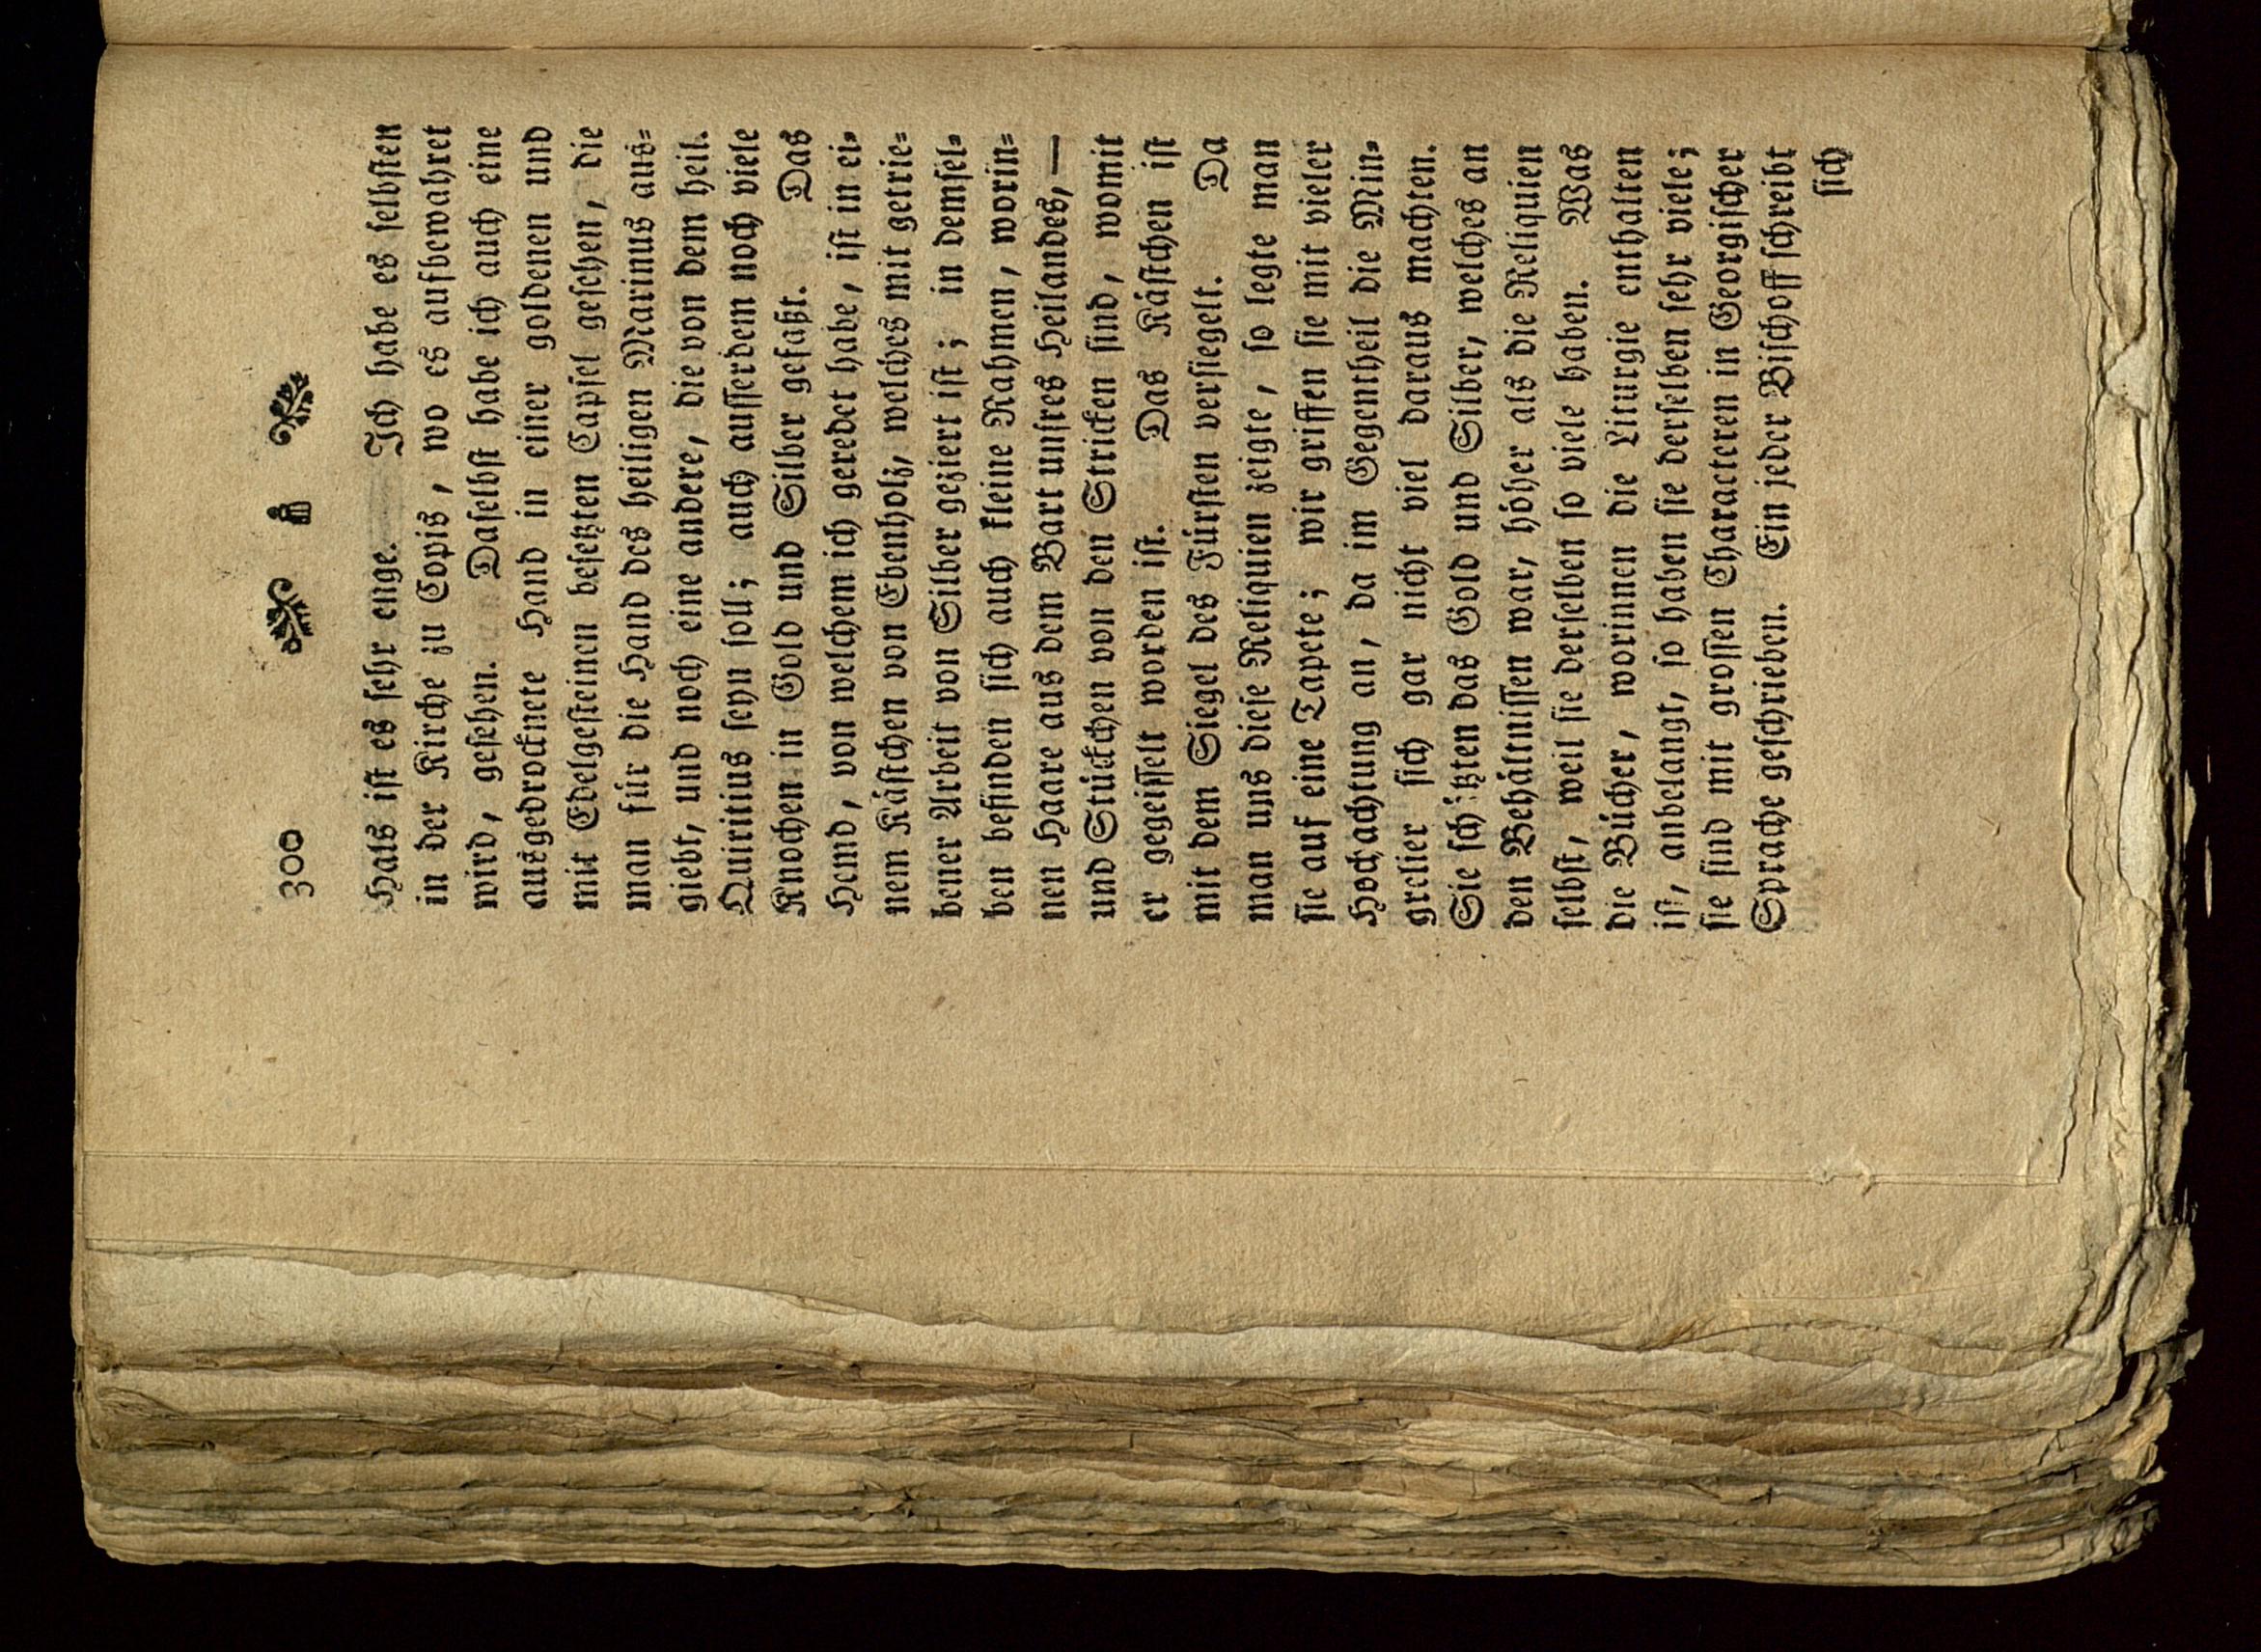 300
Hals iſt es ſehr enge. Ich habe es ſelbſten
in der Kirche zu Copis, wo es aufbewahret
wird, geſehen. Daſelbſt habe ich auch eine
ausgedrocknete Hand in einer goldenen und
mit Edelgeſteinen beſetzten Capſel geſehen, die
man für die Hand des heiligen Marinus aus-
giebt, und noch eine andere, die von dem heil.
Quiritius ſeyn ſoll; auch auſſerdem noch viele
Knochen in Gold und Silber gefaßt. Das
Hemd, von welchem ich geredet habe, iſt in ei-
nem Käſtchen von Ebenholz, welches mit getrie-
bener Arbeit von Silber geziert iſt; in demſel-
ben befinden ſich auch kleine Rahmen, worin-
nen Haare aus dem Bart unſres Heilandes, —
und Stückchen von den Stricken ſind, womit
er gegeiſſelt worden iſt. Das Käſtchen iſt
mit dem Siegel des Fürſten verſiegelt. Da
man uns dieſe Reliquien zeigte, ſo legte man
ſie auf eine Tapete; wir griffen ſie mit vieler
Hochachtung an, da im Gegentheil die Min-
grelier ſich gar nicht viel daraus machten.
Sie ſchätzten das Gold und Silber, welches an
den Behältniſſen war, höher als die Reliquien
ſelbſt, weil ſie derſelben ſo viele haben. Was
die Bücher, worinnen die Liturgie enthalten
iſt, anbelangt, ſo haben ſie derſelben ſehr viele;
ſie ſind mit groſſen Characteren in Georgiſcher
Sprache geſchrieben. Ein jeder Biſchoff ſchreibt
ſich